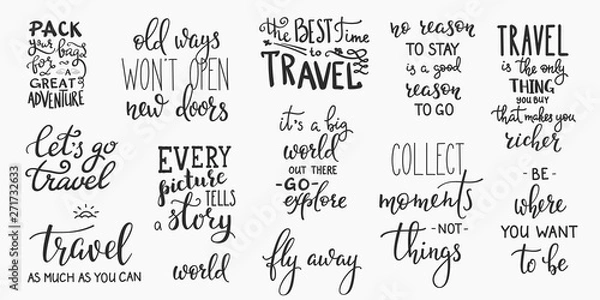 PACK
your bags
for
A
GREAT
ADVENTURE
old ways
WON'T OPEN
new doors
the BEST time
to
TRAVEL
no reason
TO STAY
is a good
reason
TO GO
TRAVEL
is the only
THING
YOU BUY
that makes you
richer
let's go
travel
EVERY
picture
TELLS
a story
it's a big
world
OUT THERE
- GO -
explore
COLLECT
moments
- NOT -
things
- BE -
where
YOU WANT
to be
travel
AS MUCH AS YOU CAN
world
fly away
Adobe Stock | #271732633